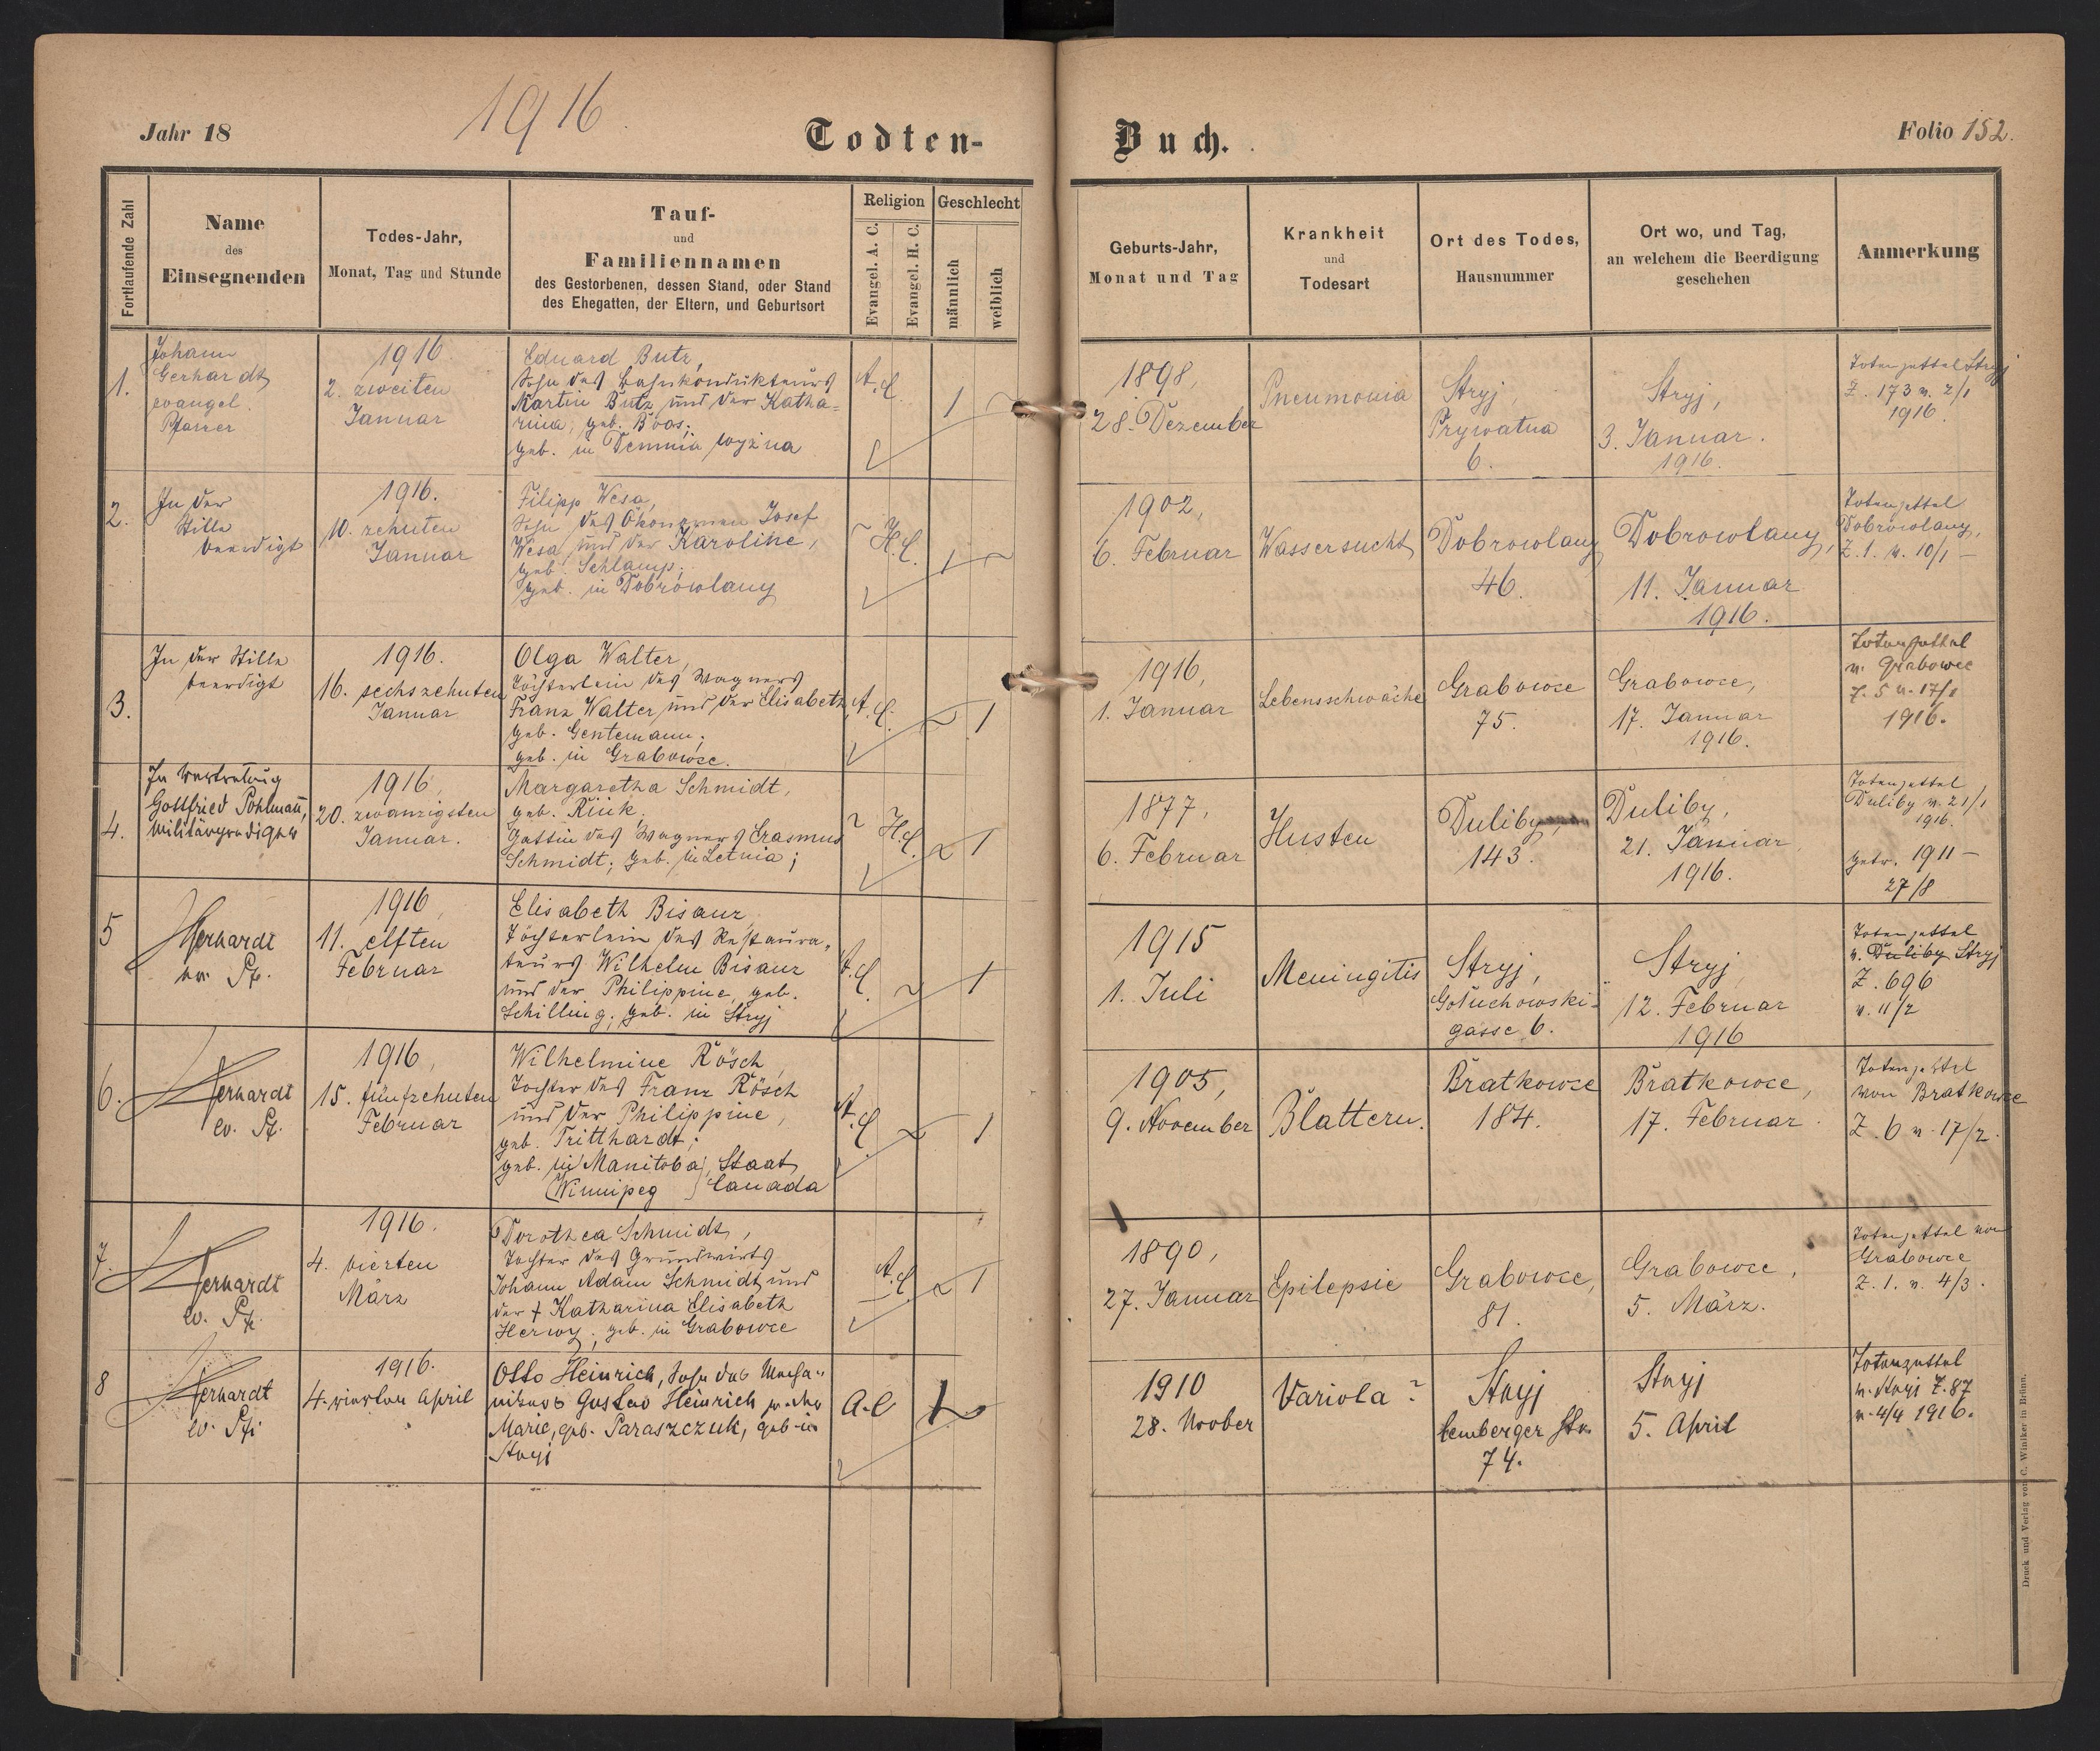 Jahr 18
1916
Todten-
Buch.
Folio 152.
Fortlaufende Zahl
Name
des
Einsegnenden
Todes-Jahr,
Monat, Tag und Stunde
Tauf-
und
Familiennamen
des Gestorbenen, dessen Stand, oder Stand
des Ehegatten, der Eltern, und Geburtsort
Religion
Evangel. A. C.
Evangel. H. C.
Geschlecht
männlich
weiblich
Geburts-Jahr,
Monat und Tag
Krankheit
und
Todesart
Ort des Todes,
Hausnummer
Ort wo, und Tag,
an welchem die Beerdigung
geschehen
Anmerkung
1.
Johann
Gerhardt
evangel.
Pfarrer
1916
2. zweiten
Januar
Eduard Butz,
Sohn des Bahnkondukteurs
Martin Butz und der Katha-
rina, geb. Boos;
geb. in Demnia wyżna
A.C.
1
1898,
28. Dezember
Pneumonia
Stryj,
Prywatna
6.
Stryj,
3. Januar.
1916.
Totenzettel Stryj
Z. 173 v. 2/1
1916
2.
In der
Stille
beerdigt
1916.
10. zehnten
Januar
Filipp Wesa,
Sohn des Ökonomen Josef
Wesa und der Karoline,
geb. Schlamp;
geb. in Dobrowlany
H.C.
1
1902,
6. Februar
Wassersucht
Dobrowlany
46.
Dobrowlany,
11. Januar
1916.
Totenzettel
Dobrowlany,
Z. 1. v. 10/1 —
3.
In der Stille
beerdigt
1916.
16. sechszehnten
Januar
Olga Walter,
Töchterlein des Wagners
Franz Walter und der Elisabeth,
geb. Gentemann;
geb. in Grabowce.
A.C.
1
1916,
1. Januar
Lebensschwäche
Grabowce
75.
Grabowce,
17. Januar
1916.
Totenzettel
v. Grabowce
Z. 5 v. 17/1
1916.
4.
In Vertretung
Gottfried Pohlmann,
Militärprediger
1916,
20. zwanzigsten
Januar.
Margaretha Schmidt,
geb. Rück,
Gattin des Wagners Erasmus
Schmidt; geb. in Letnia;
H.C.
1
1877,
6. Februar
Husten
Duliby,
143.
Duliby,
21. Januar
1916.
Totenzettel
Duliby v. 21/1
1916.
getr. 1911 —
27/8
5
Gerhardt
ev. Pf.
1916,
11. elften
Februar
Elisabeth Bisanz,
Töchterlein des Restaura-
teurs Wilhelm Bisanz
und der Philippine, geb.
Schilling; geb. in Stryj
A.C.
1
1915
1. Juli
Meningitis
Stryj,
Gołuchowski-
gasse 6.
Stryj,
12. Februar
1916
Totenzettel
v. Duliby Stryj
Z. 696
v. 11/2
6.
Gerhardt
ev. Pf.
1916,
15. fünfzehnten
Februar
Wilhelmine Rösch,
Tochter des Franz Rösch
und der Philippine,
geb. Tritthardt;
geb. in Manitoba, Staat
(Winnipeg) Canada
A.C.
1
1905,
9. November
Blattern.
Bratkowce
184.
Bratkowce,
17. Februar.
Totenzettel
von Bratkowce
Z. 6 v. 17/2.
7.
Gerhardt
ev. Pf.
1916.
4. vierten
März
Dorothea Schmidt,
Tochter des Grundwirts
Johann Adam Schmidt und
der † Katharina Elisabeth
Herwy; geb. in Grabowce
A.C.
1
1890,
27. Januar
Epilepsie
Grabowce,
81.
Grabowce,
5. März.
Totenzettel von
Grabowce
Z. 1. v. 4/3.
8
Gerhardt
ev. Pf.
1916.
4. vierten April
Otto Heinrich, Sohn des Mecha-
nikers Gustav Heinrich u. der
Marie, geb. Paraszczuk, geb. in
Stryj
A.C
1
1910
28. Novber
Variola?
Stryj
Lemberger Str.
74.
Stryj
5. April
Totenzettel
v. Stryj Z. 87
v. 4/4 1916.
Druck und Verlag von C. Winiker in Brünn.